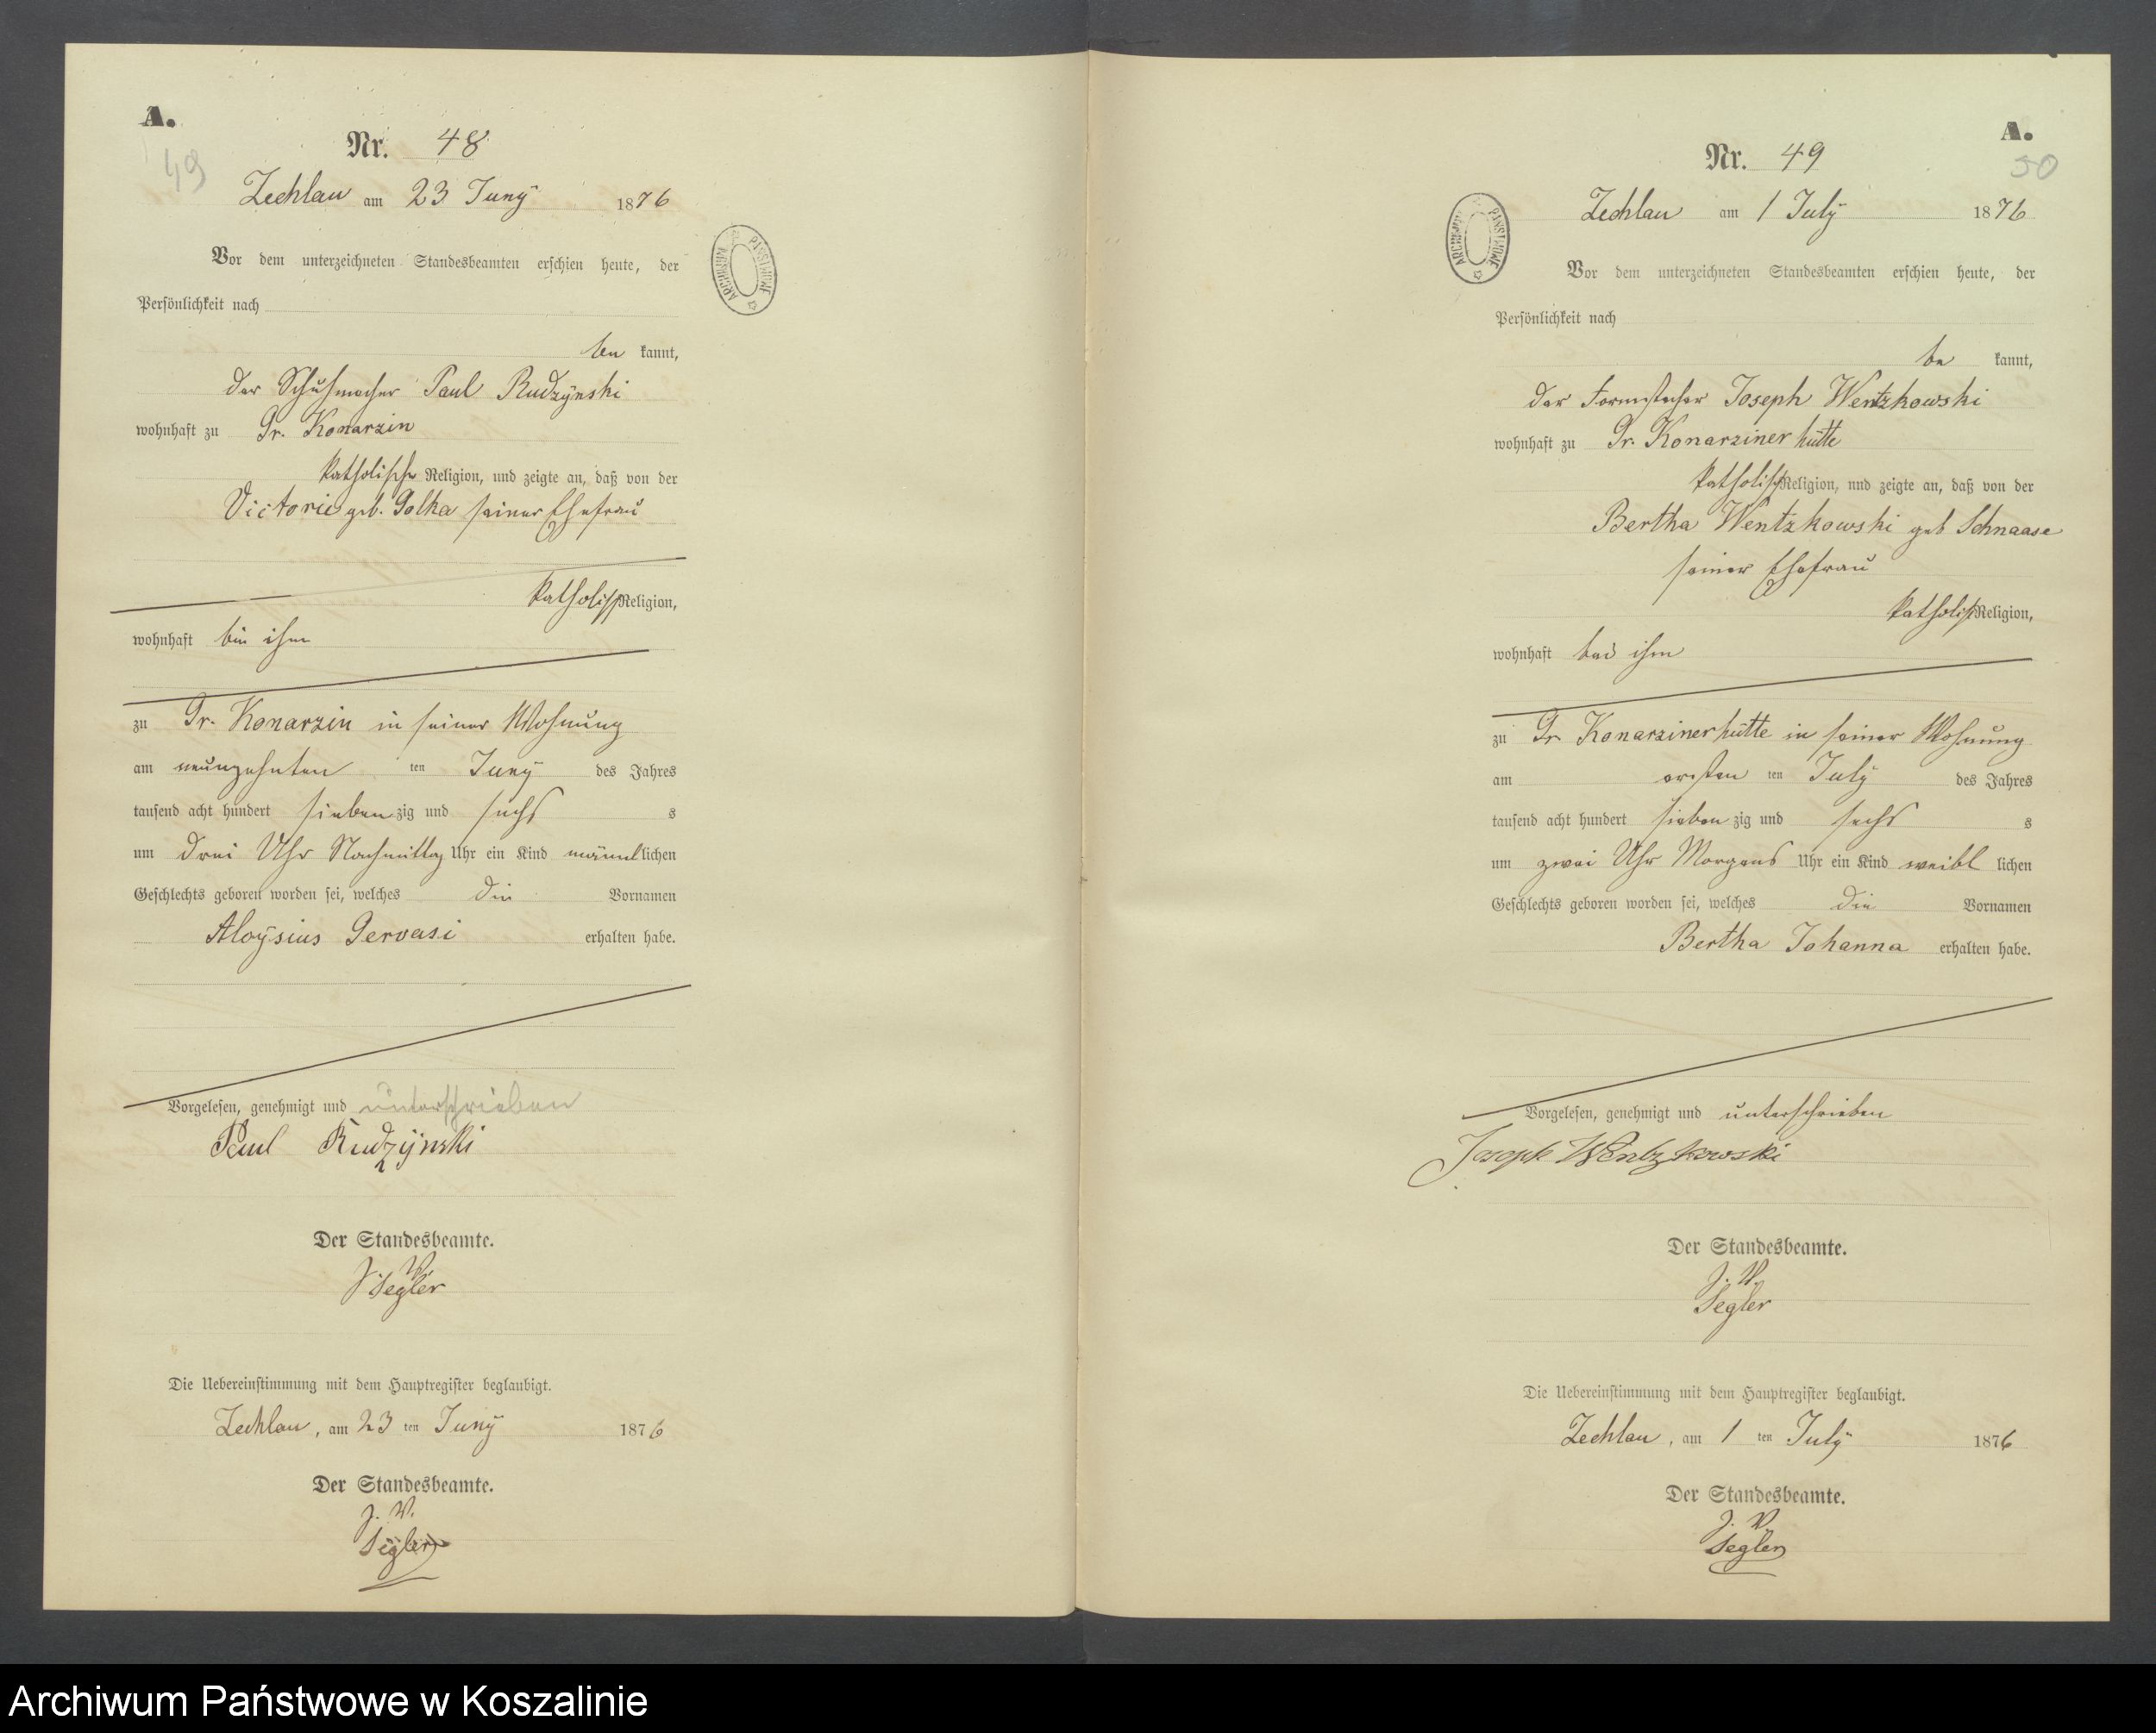 A.
49
Nr. 48
Zechlau am 23 Juny 1876
Vor dem unterzeichneten Standesbeamten erschien heute, der
Persönlichkeit nach
be kannt,
der Schuhmacher Paul Rudzynski
wohnhaft zu Gr. Konarzin
katholischer Religion, und zeigte an, daß von der
Victoria geb. Golka seiner Ehefrau
katholisch Religion,
wohnhaft bei ihm
zu Gr. Konarzin in seiner Wohnung
am neunzehnten ten Juny des Jahres
tausend acht hundert sieben zig und sechs s
um drei Uhr Nachmittag Uhr ein Kind männlichen
Geschlechts geboren worden sei, welches die Vornamen
Aloysius Gervasi erhalten habe.
Vorgelesen, genehmigt und unterschrieben
Paul Rudzynski
Der Standesbeamte.
J. V.
Segler
Die Uebereinstimmung mit dem Hauptregister beglaubigt.
Zechlau, am 23 ten Juny 1876
Der Standesbeamte.
J. V.
Segler
ARCHIWUM PAŃSTWOWE
A.
50
Nr. 49
Zechlau am 1 July 1876
Vor dem unterzeichneten Standesbeamten erschien heute, der
Persönlichkeit nach
be kannt,
der Formstecher Joseph Wentzkowski
wohnhaft zu Gr. Konarziner hütte
katholisch Religion, und zeigte an, daß von der
Bertha Wentzkowski geb Schnaase
seiner Ehefrau
katholisch Religion,
wohnhaft bei ihm
zu Gr. Konarzinerhütte in seiner Wohnung
am ersten ten July des Jahres
tausend acht hundert sieben zig und sechs s
um zwei Uhr Morgens Uhr ein Kind weibl lichen
Geschlechts geboren worden sei, welches die Vornamen
Bertha Johanna erhalten habe.
Vorgelesen, genehmigt und unterschrieben
Joseph Wentzkowski
Der Standesbeamte.
J. V.
Segler
Die Uebereinstimmung mit dem Hauptregister beglaubigt.
Zechlau, am 1 ten July 1876
Der Standesbeamte.
J. V.
Segler
ARCHIWUM PAŃSTWOWE
Archiwum Państwowe w Koszalinie